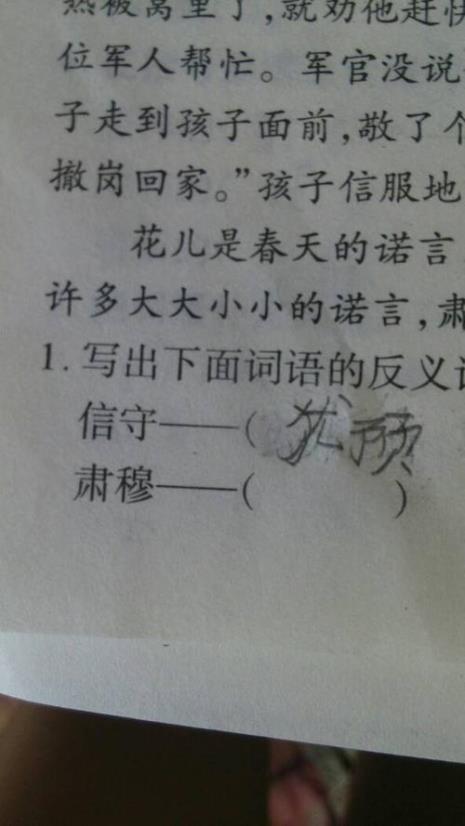 热被窝里了,就劝他赶快
位军人帮忙。军官没说
子走到孩子面前,敬了个
撤岗回家。”孩子信服地
花儿是春天的诺言
许多大大小小的诺言,肃
1.写出下面词语的反义词
信守——(犹预
肃穆——( )